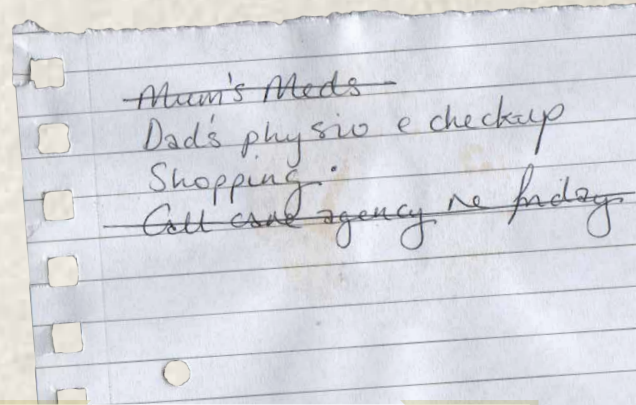 Mum's Meds
Dad's physio e checkup
Shopping.
Call care agency re friday